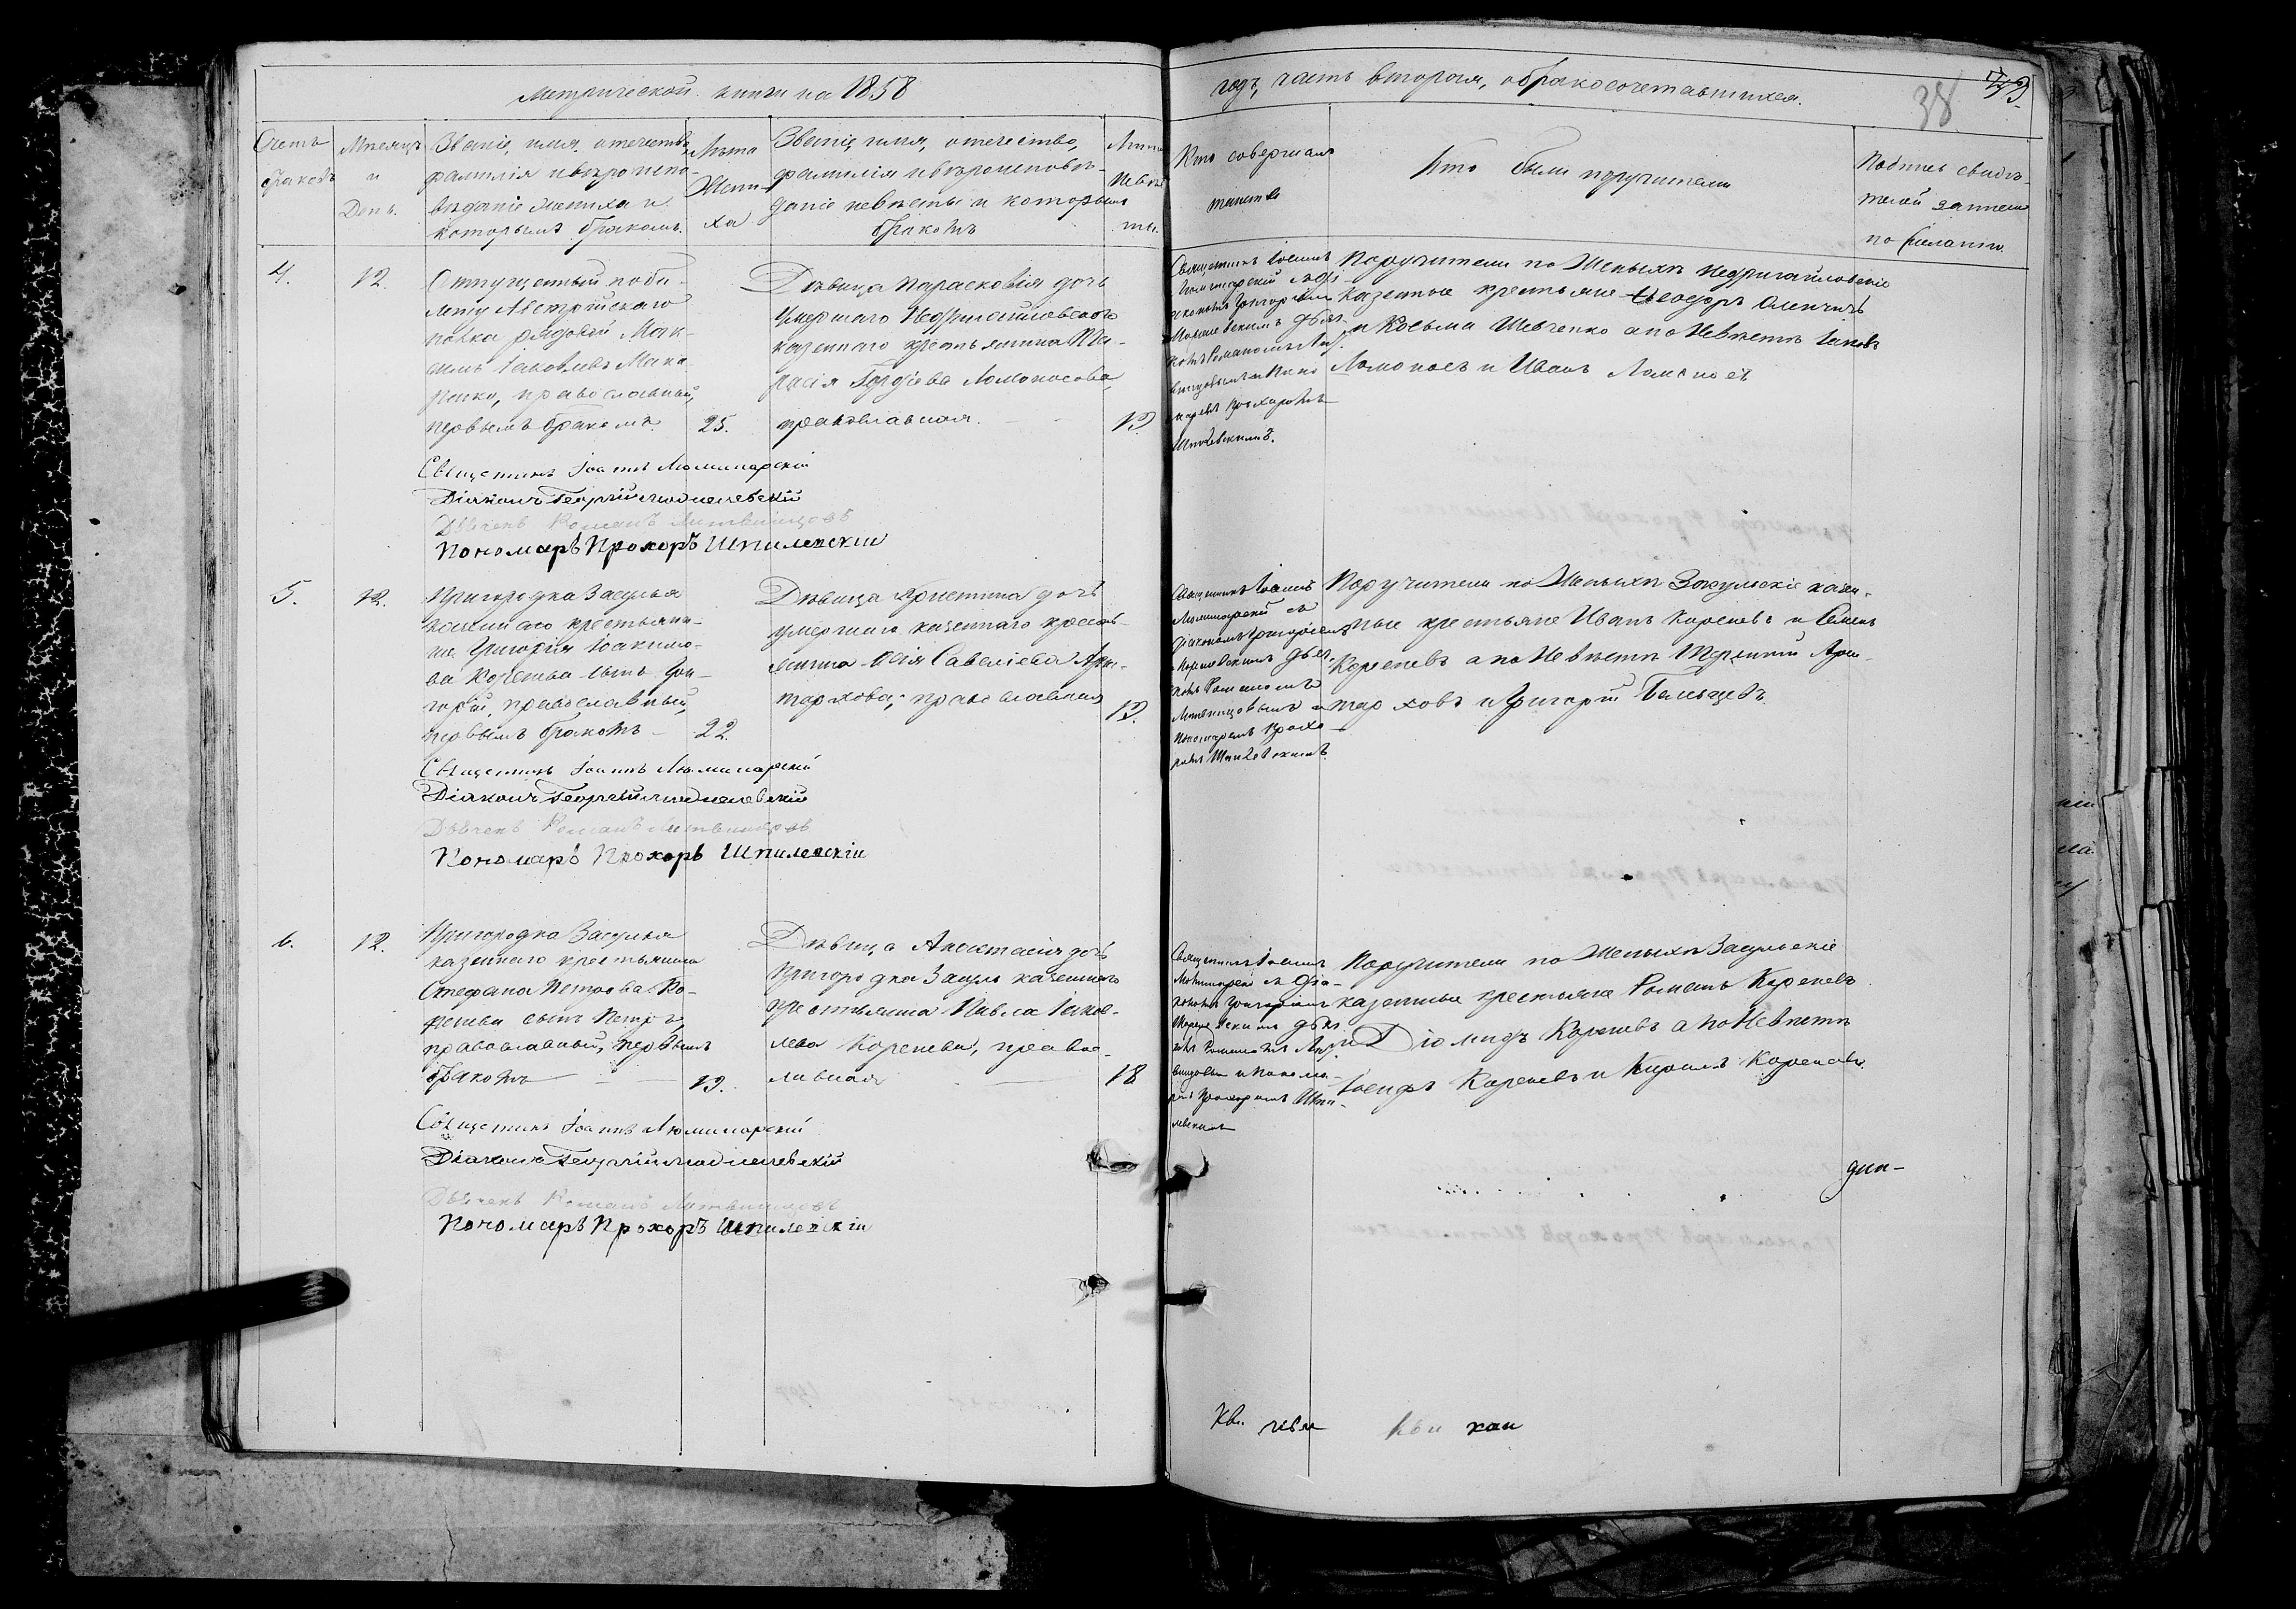 Метрической книги на 1858
годъ, часть вторая, о бракосочетавшихся.
38
Счетъ браковъ
Мѣсяцъ и День.
Званіе, имя, отечество,
фамилія и вѣроиспо-
вѣданіе жениха и
которымъ бракомъ.
Лѣта Жени-
ха
Званіе, имя, отечество,
фамилія и вѣроисповѣ-
даніе невѣсты и которымъ
бракомъ
Лѣта
Невѣс
ты.
Кто совершалъ
таинство
Кто были поручители
Подпись свидѣ-
телей записи
по желанію
4.
12.
Отпущенный по би-
лету Австрійскаго
полка рядовой Мак-
симъ Іаковлевъ Мака
ренко, православный,
первымъ бракомъ.
25.
Дѣвица Парасковія дочь
умершаго Недригайловского
казеннаго крестьянина Та-
расія Ломоносова,
православная.
19.
Священникъ Іоаннъ
Люминарскій съ Діа
кономъ Григоріемъ
дьяч
комъ Романомъ Лит
винцовымъ и Поно
маремъ Прохоромъ
Шпилевскимъ.
Поручители по Женихѣ Недригайловскіе
казенные крестьяне Ѳеодоръ
и Косьма Шевченко а по Невѣстѣ Іаковъ
Ломоносъ и Иванъ Ломоносъ
Священникъ Іоаннъ Люминарскій
Діаконъ Георгій
Дьячекъ Романъ Литвинцовъ
Пономарь Прохоръ Шпилевскій
5.
12.
Пригородка Засулья
казеннаго крестьяни-
на Григорія Іоакимо-
ва Коренева сынъ Гри-
горій, православный,
первымъ бракомъ
22.
Дѣвица Христина дочь
умершаго казеннаго кресть-
янина Савеліева Ари-
стархова, православная
19.
Священникъ Іоаннъ
Люминарскій съ
Діакономъ Григоріемъ
дьяч
комъ Романомъ
Литвинцовымъ и
Пономаремъ Прохо
ромъ Шпилевскимъ.
Поручители по Женихѣ Засульскіе казен-
ные крестьяне Иванъ Кореневъ и Семенъ
Кореневъ а по Невѣстѣ Терентій Ари-
старховъ и Григорій
Священникъ Іоаннъ Люминарскій
Діаконъ Георгій
Дьячекъ Романъ Литвинцовъ
Пономарь Прохоръ Шпилевскій
6.
12.
Пригородка Засулья
казеннаго крестьянина
Стефана Петрова Ко-
ренева сынъ Петръ,
православный, первымъ
бракомъ
19.
Дѣвица Анастасія дочь
Пригородка Засулья казеннаго
крестьянина Павла Іаков-
лева Коренева, правос-
лавная
18
Священникъ Іоаннъ
Люминарскій съ Діа-
кономъ Григоріемъ
дьяч
комъ Романомъ Лит
винцовымъ и Понома-
ремъ Прохоромъ Шпи-
левскимъ
Поручители по Женихѣ Засульскіе
казенные крестьяне Романъ Кореневъ
и Діомидъ Кореневъ а по Невѣстѣ
Іосифъ Кореневъ и Кирилъ Кореневъ.
Священникъ Іоаннъ Люминарскій
Діаконъ Георгій
Дьячекъ Романъ Литвинцовъ
Пономарь Прохоръ Шпилевскій